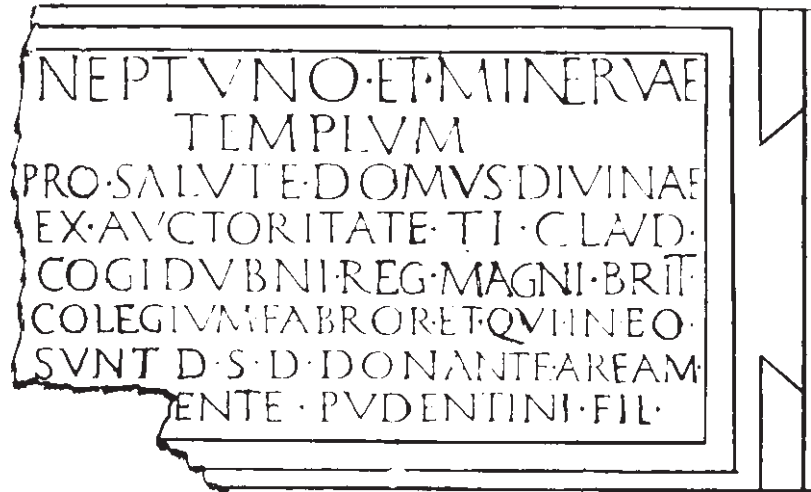 NEPTVNO·ET·MINERVAE
TEMPLVM
PRO·SALVTE·DOMVS·DIVINAE
EX·AVCTORITATE·TI·CLAVD·
COGIDVBNI·REG·MAGNI·BRIT·
COLEGIVM·FABROR·ET·QVI·IN·EO·
SVNT·D·S·D·DONANTE·AREAM·
ENTE·PVDENTINI·FIL·